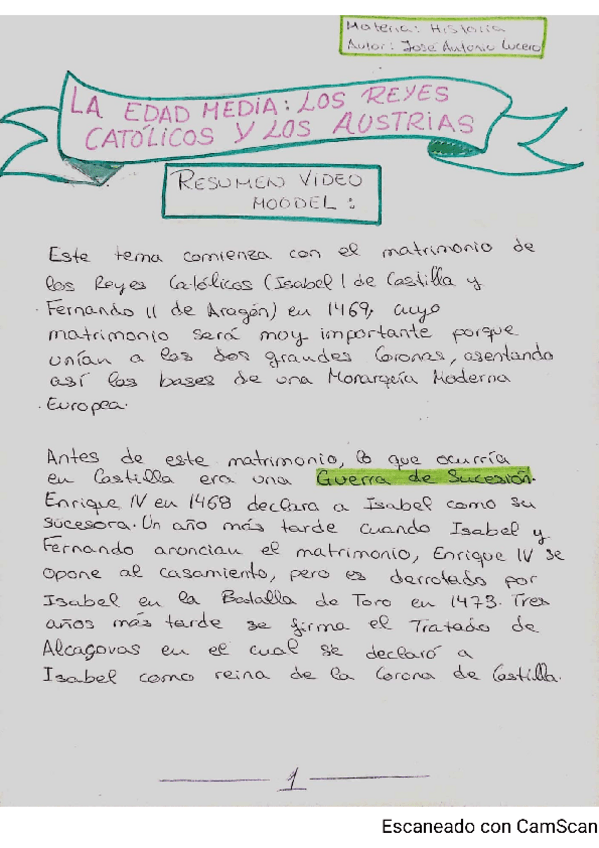 Materia: Historia
Autor: José Antonio Lucero
LA EDAD MEDIA: LOS REYES
CATÓLICOS Y LOS AUSTRIAS
RESUMEN VIDEO
MOODEL:
Este tema comienza con el matrimonio de
los Reyes Católicos (Isabel I de Castilla y
Fernando II de Aragón) en 1469, cuyo
matrimonio será muy importante porque
unían a las dos grandes Coronas, asentando
así las bases de una Monarquía Moderna
Europea.
Antes de este matrimonio, lo que ocurría
en Castilla era una Guerra de Sucesión.
Enrique IV en 1468 declara a Isabel como su
sucesora. Un año más tarde cuando Isabel y
Fernando anoncian el matrimonio, Enrique IV se
opone al casamiento, pero es derrotado por
Isabel en la Batalla de Toro en 1473. Tres
años más tarde se firma el Tratado de
Alcagovas en el cual se declaró a
Isabel como reina de la Corona de Castilla.
1
Escaneado con CamScan